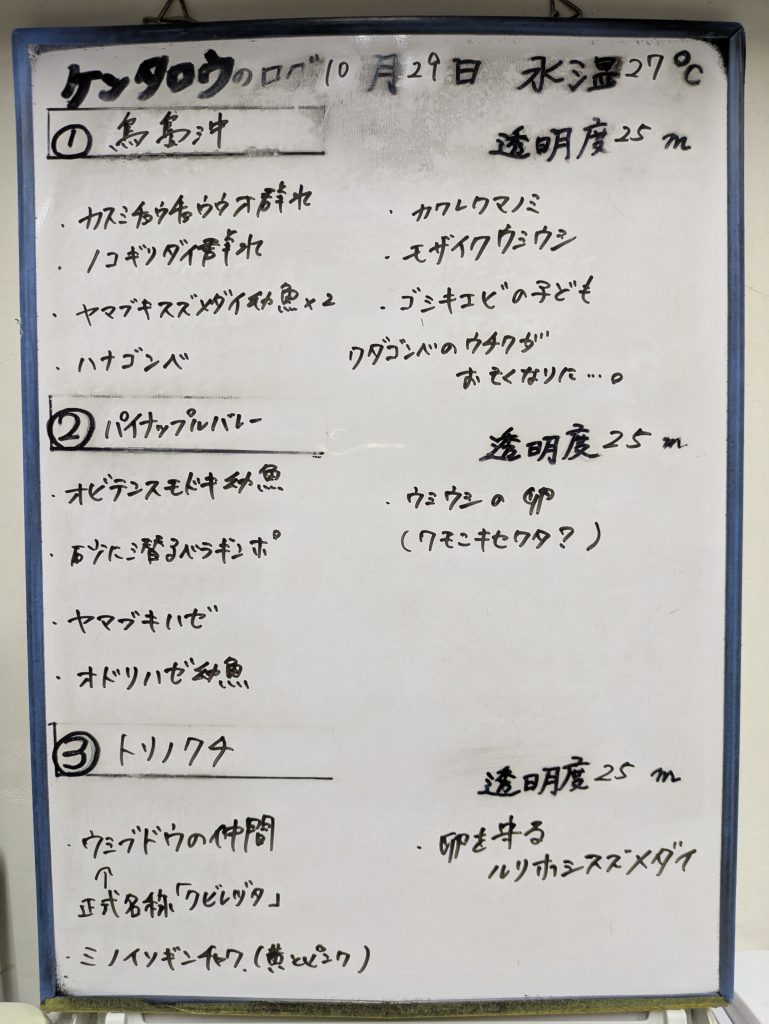 ケンタロウのログ 10月29日 水温27℃
① 鳥島沖
透明度25m
・カスミチョウチョウウオ群れ
・ノコギリダイ群れ
・ヤマブキスズメダイ幼魚×2
・ハナゴンベ
・カクレクマノミ
・モザイクウミウシ
・ゴシキエビの子ども
クダゴンベのウチワが
おそくなりた…。
② パイナップルバレー
透明度25m
・オビテンスモドキ幼魚
・砂に潜るベラギンポ
・ヤマブキハゼ
・オドリハゼ幼魚
・ウミウシの卵
(クモニキセワタ?)
③ トリノクチ
透明度25m
・ウミブドウの仲間
↑
正式名称「クビレヅタ」
・ミノイソギンチャク(黄とピンク)
・卵を守る
ルリホシスズメダイ